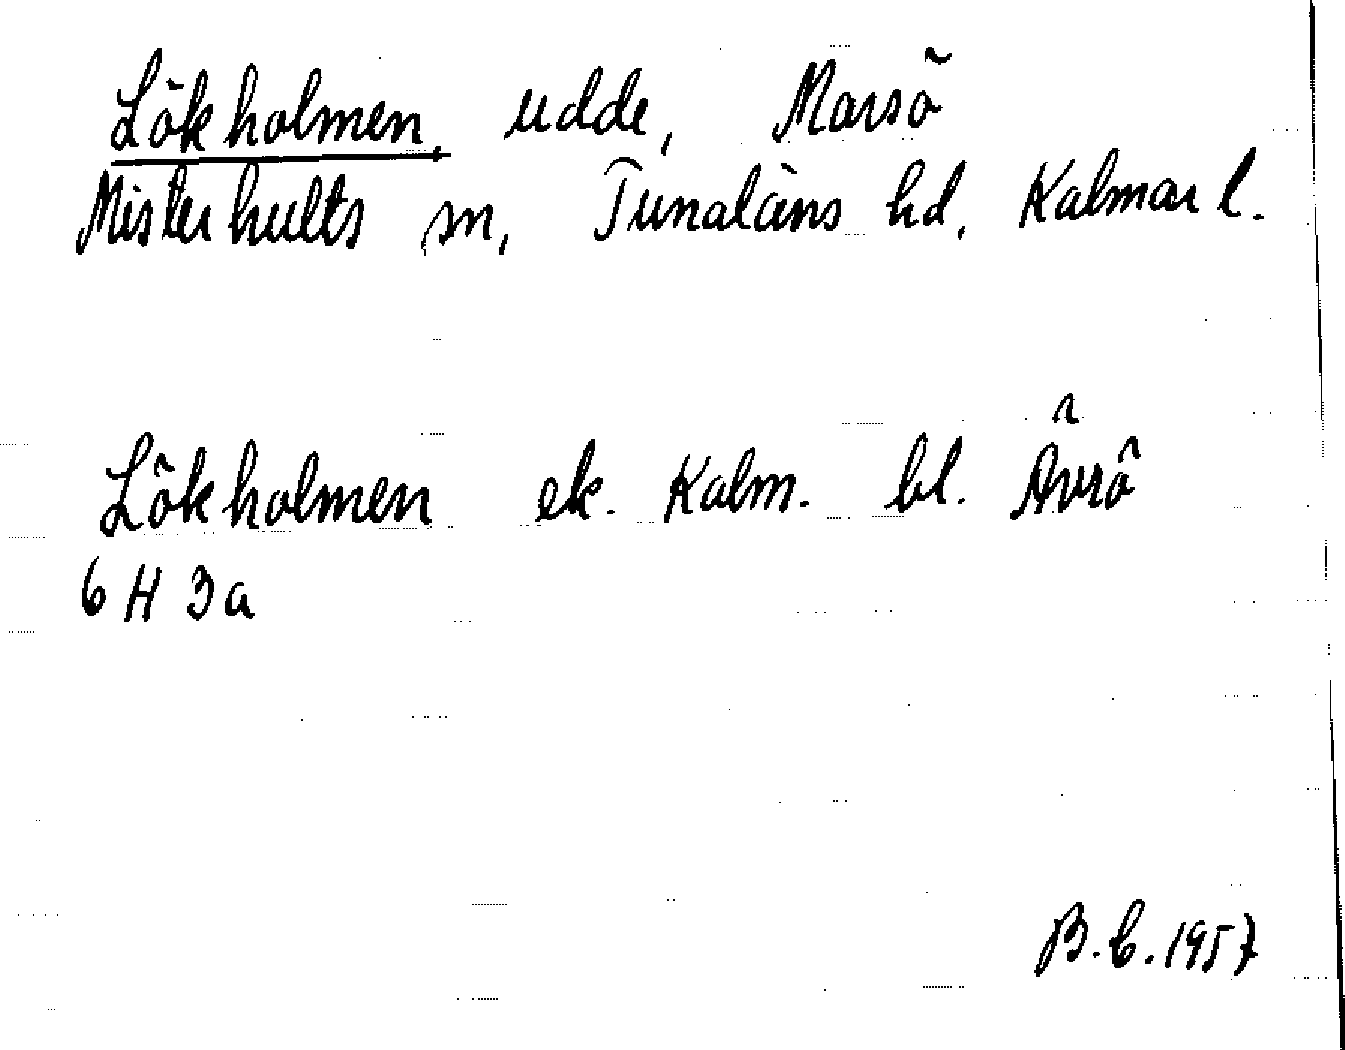 Lökholmen, udde, Marsö
Misterhults sn, Tunaläns hd, Kalmar l.
Lökholmen ek. Kalm. bl. Ävrö
6 H 3a
B.b. 1957